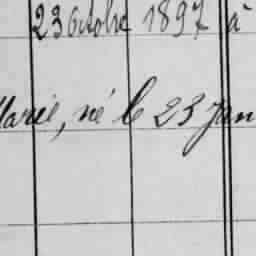 23 Octobre 1897 à
Marie, né le 23 Jan